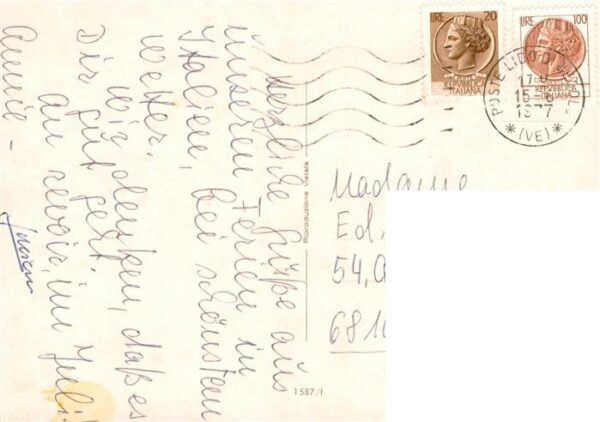 Herzliche Grüße aus
unseren Ferien in
Italien, bei schönstem
Wetter.
Wir denken, daß es
Dir gut geht.
Au revoir, im Juli!
Annie -
LIRE 20
REPUBBLICA
ITALIANA
LIRE 100
REPUBBLICA
ITALIANA
POSTE LIDO D
15-6
1977
* (VE) *
Madame
Ed.
54,
681
Riproduzione vietata
1587/I